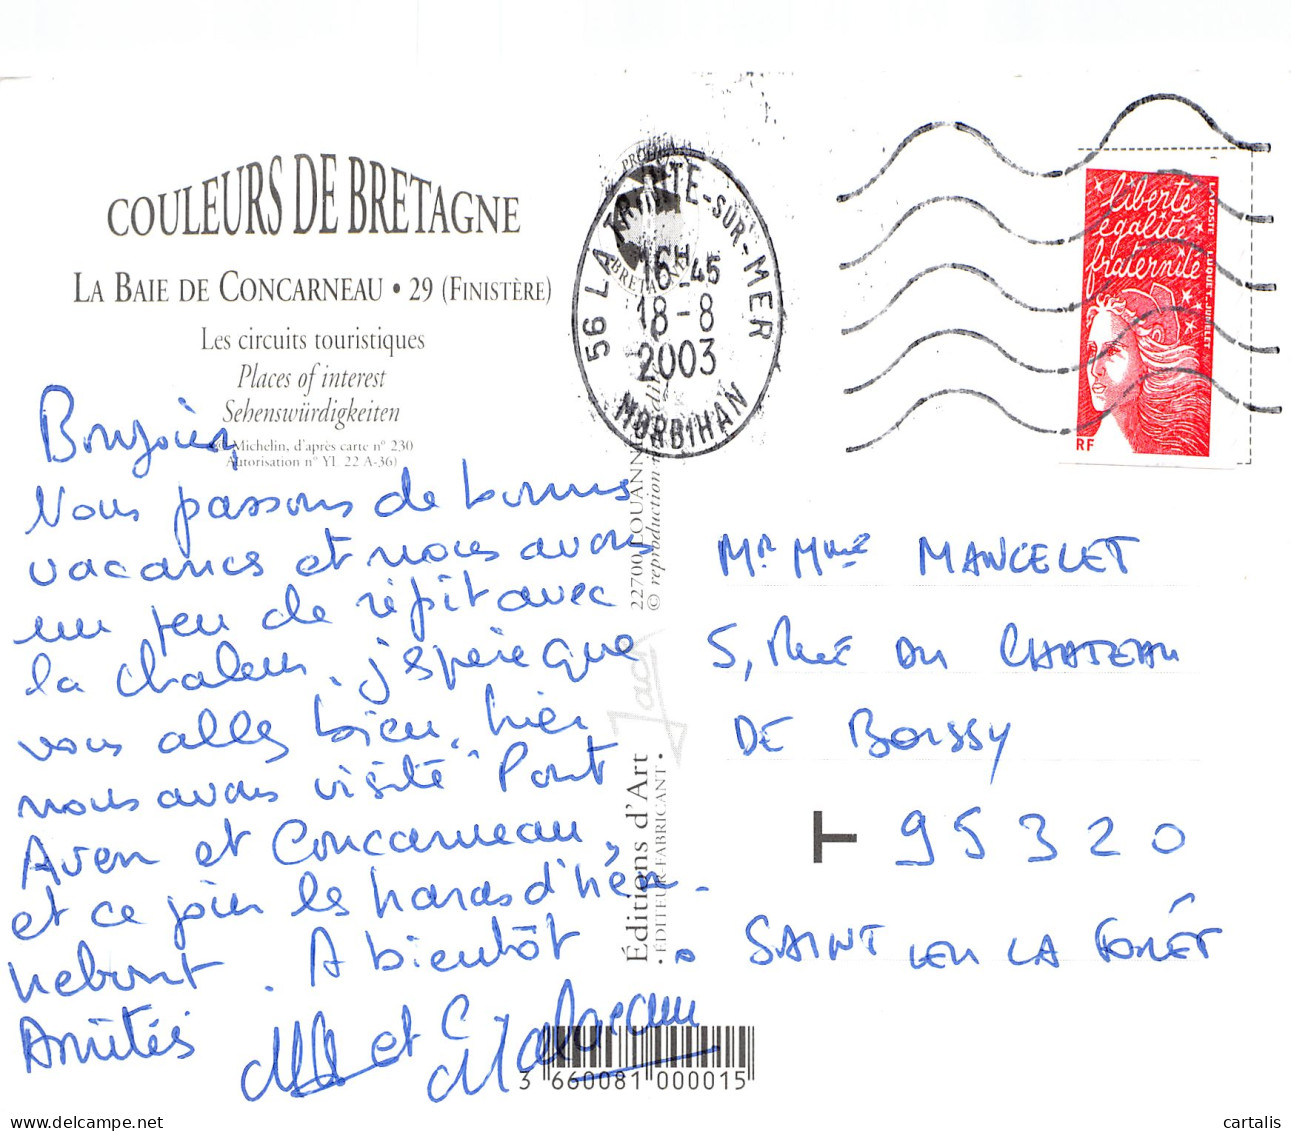 COULEURS DE BRETAGNE
LA BAIE DE CONCARNEAU • 29 (FINISTÈRE)
Les circuits touristiques
Places of interest
Sehenswürdigkeiten
Michelin, d'après carte n° 230
Autorisation n° YL 22 A-36)
Bonjour,
Nous passons de bonnes
vacances et nous avons
un peu de répit avec
la chaleur. j'espère que
vous allez bien, hier
nous avons visité "Pont
Aven et Concarneau,
et ce jour les haras d'hén-
nebont. A bientôt
Amitiés
et
56 LA TRINITE-SUR-MER
16H45
18-8
2003
MORBIHAN
BRETAGNE
22700 LOUANNEC
© reproduction
Jack
Éditions d'Art
• ÉDITEUR-FABRICANT •
3 660081 000015
liberté
égalité
fraternité
LA POSTE LUQUET-JUMELET
RF
Mr Mme MANCELET
5, Rue du CHATEAU
DE BOISSY
T 95320
SAINT LEU LA FORÊT
cartalis